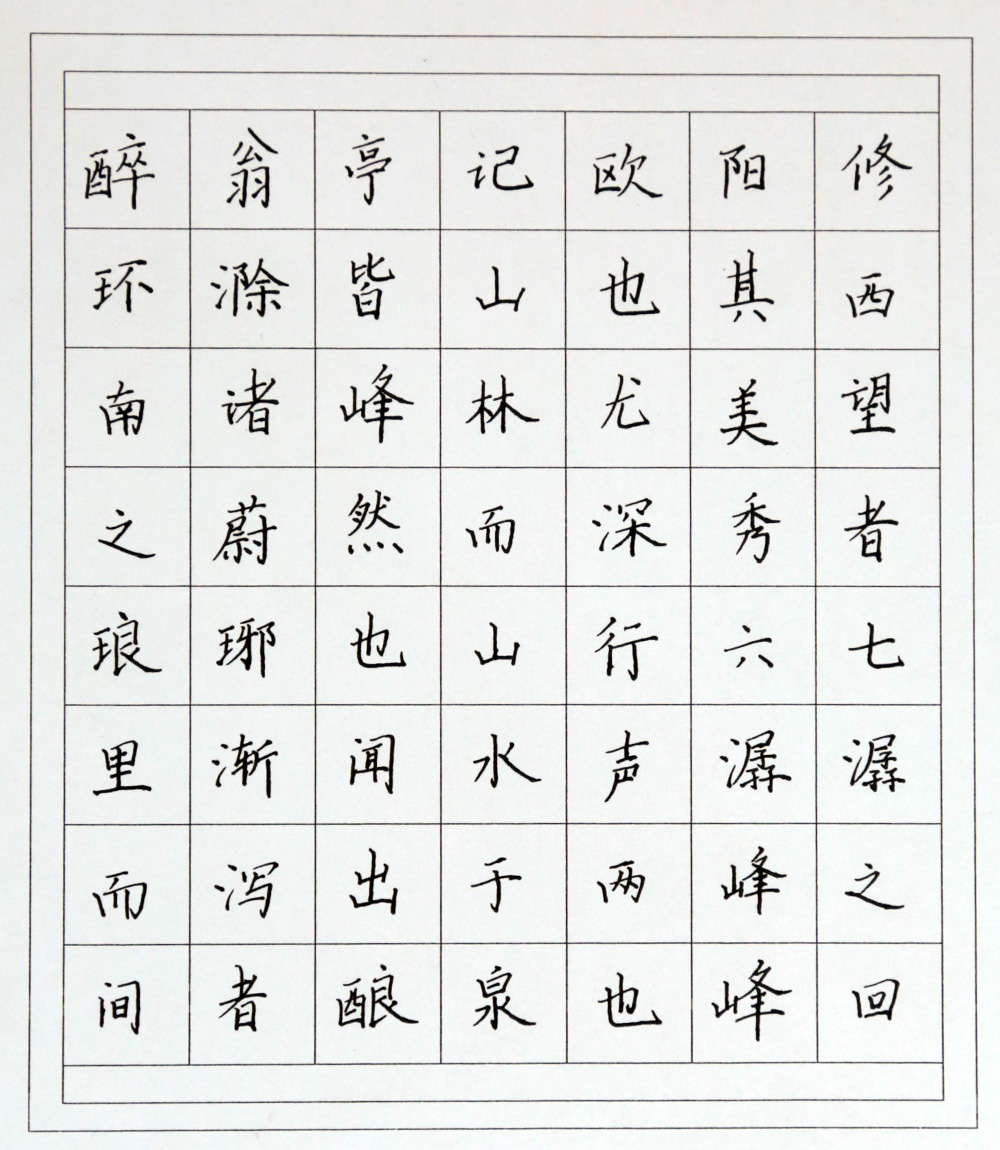 醉翁亭记欧阳修
环滁皆山也其西
南诸峰林尤美望
之蔚然而深秀者
琅琊也山行六七
里渐闻水声潺潺
而泻出于两峰之
间者酿泉也峰回